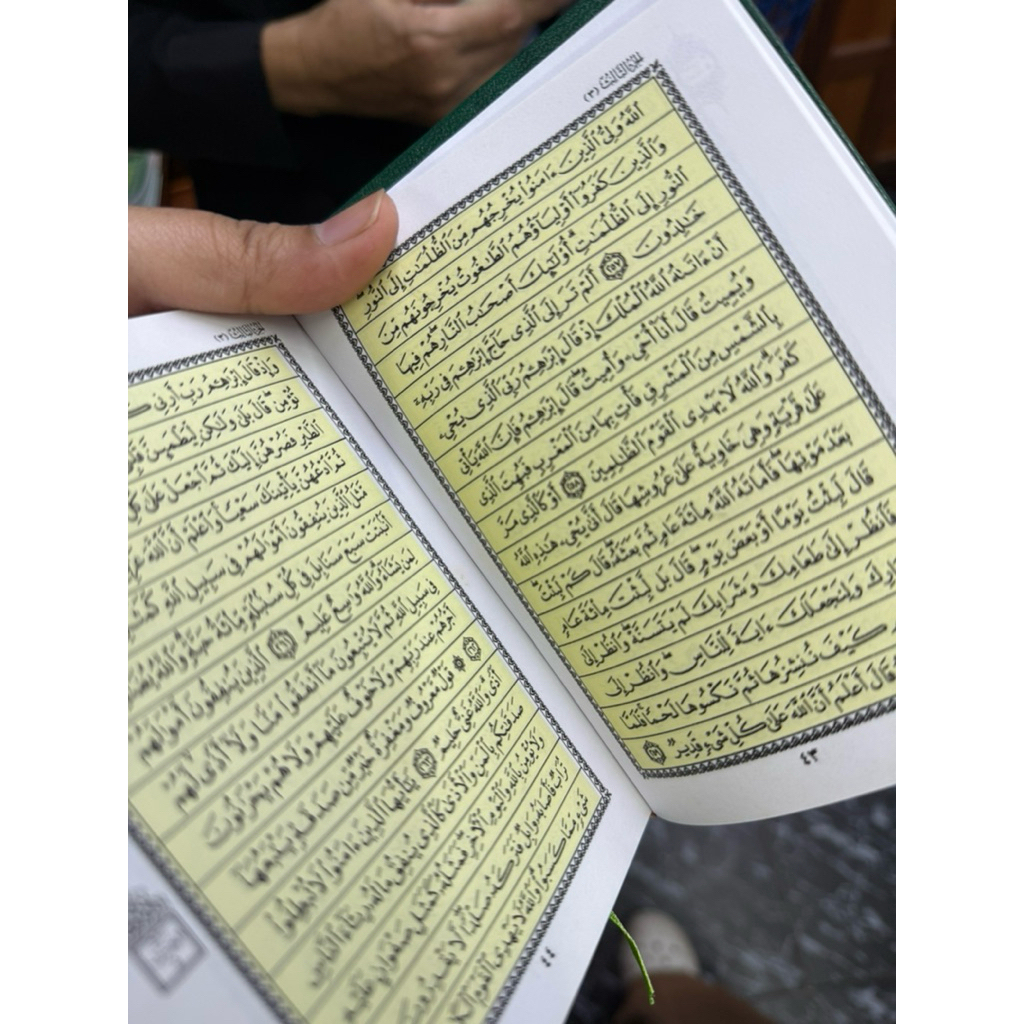 الجزء الثالث (٣)
اللَّهُ وَلِيُّ الَّذِينَ ءَامَنُوا يُخْرِجُهُم مِّنَ الظُّلُمَٰتِ إِلَى النُّورِ
وَالَّذِينَ كَفَرُوا أَوْلِيَاؤُهُمُ الطَّٰغُوتُ يُخْرِجُونَهُم مِّنَ
النُّورِ إِلَى الظُّلُمَٰتِ أُولَٰئِكَ أَصْحَٰبُ النَّارِ هُمْ فِيهَا
خَٰلِدُونَ ٢٥٧ أَلَمْ تَرَ إِلَى الَّذِي حَاجَّ إِبْرَٰهِۦمَ فِي رَبِّهِۦ
أَنْ ءَاتَىٰهُ اللَّهُ الْمُلْكَ إِذْ قَالَ إِبْرَٰهِۦمُ رَبِّيَ الَّذِي يُحْيِۦ
وَيُمِيتُ قَالَ أَنَا أُحْيِۦ وَأُمِيتُ قَالَ إِبْرَٰهِۦمُ فَإِنَّ اللَّهَ يَأْتِي
بِالشَّمْسِ مِنَ الْمَشْرِقِ فَأْتِ بِهَا مِنَ الْمَغْرِبِ فَبُهِتَ الَّذِي
كَفَرَ وَاللَّهُ لَا يَهْدِي الْقَوْمَ الظَّٰلِمِينَ ٢٥٨ أَوْ كَالَّذِي مَرَّ
عَلَىٰ قَرْيَةٍ وَهِيَ خَاوِيَةٌ عَلَىٰ عُرُوشِهَا قَالَ أَنَّىٰ يُحْيِۦ هَٰذِهِ اللَّهُ
بَعْدَ مَوْتِهَا فَأَمَاتَهُ اللَّهُ مِائَةَ عَامٍ ثُمَّ بَعَثَهُ قَالَ كَمْ لَبِثْتَ
قَالَ لَبِثْتُ يَوْمًا أَوْ بَعْضَ يَوْمٍ قَالَ بَل لَّبِثْتَ مِائَةَ عَامٍ
فَانظُرْ إِلَىٰ طَعَامِكَ وَشَرَابِكَ لَمْ يَتَسَنَّهْ وَانظُرْ إِلَىٰ
وَلِنَجْعَلَكَ ءَايَةً لِّلنَّاسِ وَانظُرْ إِلَى
كَيْفَ نُنشِزُهَا ثُمَّ نَكْسُوهَا لَحْمًا فَلَمَّا
قَالَ أَعْلَمُ أَنَّ اللَّهَ عَلَىٰ كُلِّ شَيْءٍ قَدِيرٌ ٢٥٩
٤٣
الجزء الثالث (٣)
وَإِذْ قَالَ إِبْرَٰهِۦمُ رَبِّ أَرِنِي
تُؤْمِن قَالَ بَلَىٰ وَلَٰكِن لِّيَطْمَئِنَّ
الطَّيْرِ فَصُرْهُنَّ إِلَيْكَ ثُمَّ اجْعَلْ عَلَىٰ
ثُمَّ ادْعُهُنَّ يَأْتِينَكَ سَعْيًا وَاعْلَمْ أَنَّ اللَّهَ
مَّثَلُ الَّذِينَ يُنفِقُونَ أَمْوَٰلَهُمْ فِي سَبِيلِ اللَّهِ
أَنبَتَتْ سَبْعَ سَنَابِلَ فِي كُلِّ سُنبُلَةٍ مِّائَةُ حَبَّةٍ وَاللَّهُ
لِمَن يَشَاءُ وَاللَّهُ وَٰسِعٌ عَلِيمٌ ٢٦١ الَّذِينَ يُنفِقُونَ أَمْوَٰلَهُمْ
فِي سَبِيلِ اللَّهِ ثُمَّ لَا يُتْبِعُونَ مَا أَنفَقُوا مَنًّا وَلَا أَذًى لَّهُمْ
أَجْرُهُمْ عِندَ رَبِّهِمْ وَلَا خَوْفٌ عَلَيْهِمْ وَلَا هُمْ يَحْزَنُونَ
٢٦٢ قَوْلٌ مَّعْرُوفٌ وَمَغْفِرَةٌ خَيْرٌ مِّن صَدَقَةٍ يَتْبَعُهَا
أَذًى وَاللَّهُ غَنِيٌّ حَلِيمٌ ٢٦٣ يَٰأَيُّهَا الَّذِينَ ءَامَنُوا لَا تُبْطِلُوا
صَدَقَٰتِكُم بِالْمَنِّ وَالْأَذَىٰ كَالَّذِي يُنفِقُ مَالَهُ رِئَاءَ النَّاسِ
وَلَا يُؤْمِنُ بِاللَّهِ وَالْيَوْمِ الْءَاخِرِ فَمَثَلُهُ كَمَثَلِ صَفْوَانٍ عَلَيْهِ
تُرَابٌ فَأَصَابَهُ وَابِلٌ فَتَرَكَهُ صَلْدًا لَّا يَقْدِرُونَ
شَيْءٍ مِّمَّا كَسَبُوا وَاللَّهُ لَا يَهْدِي الْقَوْمَ
٤٤